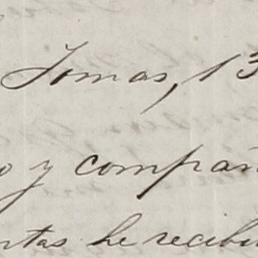 Tomas, 13
o y compañ
rtas he recibi